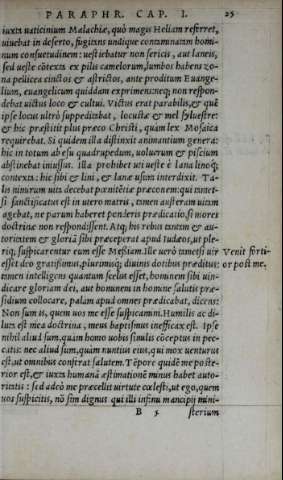 PARAPHR. CAP. I. 25
iuxta uaticinium Malachiæ, quò magis Heliam referret,
uiuebat in deserto, fugitans undique contaminatam homi-
num consuetudinem: uestiebatur non sericis, aut laneis,
sed ueste cōtexta ex pilis camelorum, lumbos habens zo-
na pellicea cinctos & astrictos, ante proditum Euange-
lium, euangelicum quiddam exprimens: neq; non respon-
debat uictus loco & cultui. Victus erat parabilis, & quē
ipse locus ultrò suppeditabat, locustæ & mel syluestre:
& hic præstitit plus præco Christi, quàm lex Mosaica
requirebat. Si quidem illa distinxit animantium genera:
hic in totum ab esu quadrupedum, uolucrum & piscium
abstinebat inuissa. Illa prohibet uti ueste è lana linoq́;
contexta: hic sibi & lini, & lanæ usum interdixit. Ta-
lis nimirum uita decebat pœnitētiæ præconem: qui tamet-
si sanctificatus est in utero matris, tamen austeram uitam
agebat, ne parum haberet ponderis prædicatio, si mores
doctrinæ non respondissent. Atq; his rebus tantam & au-
toritatem & gloriā sibi præceperat apud Iudæos, ut ple-
riq; suspicarentur eum esse Messiam. Ille uerò tametsi uir
esset deo gratissimus, plurimisq́; diuinis dotibus præditus:
tamen intelligens quantum scelus esset, hominem sibi uin-
dicare gloriam dei, aut hominem in homine salutis præ-
sidium collocare, palam apud omnes prædicabat, dicens:
Non sum is, quem uos me esse suspicamini. Humilis ac di-
luta est mea doctrina, meus baptismus inefficax est. Ipse
nihil aliud sum, quàm homo uobis similis cōceptus in pec-
catis: nec aliud sum, quàm nuntius eius, qui mox uenturus
est, ut omnibus conferat salutem. Tēpore quidē me poste-
rior est, & iuxta humanā æstimationē minus habet auto-
ritatis: sed adeò me præcellit uirtute cœlesti, ut ego, quem
uos suspicitis, nō sim dignus qui illi infimi mancipij mini-
B 5 sterium
Venit forti-
or post me.